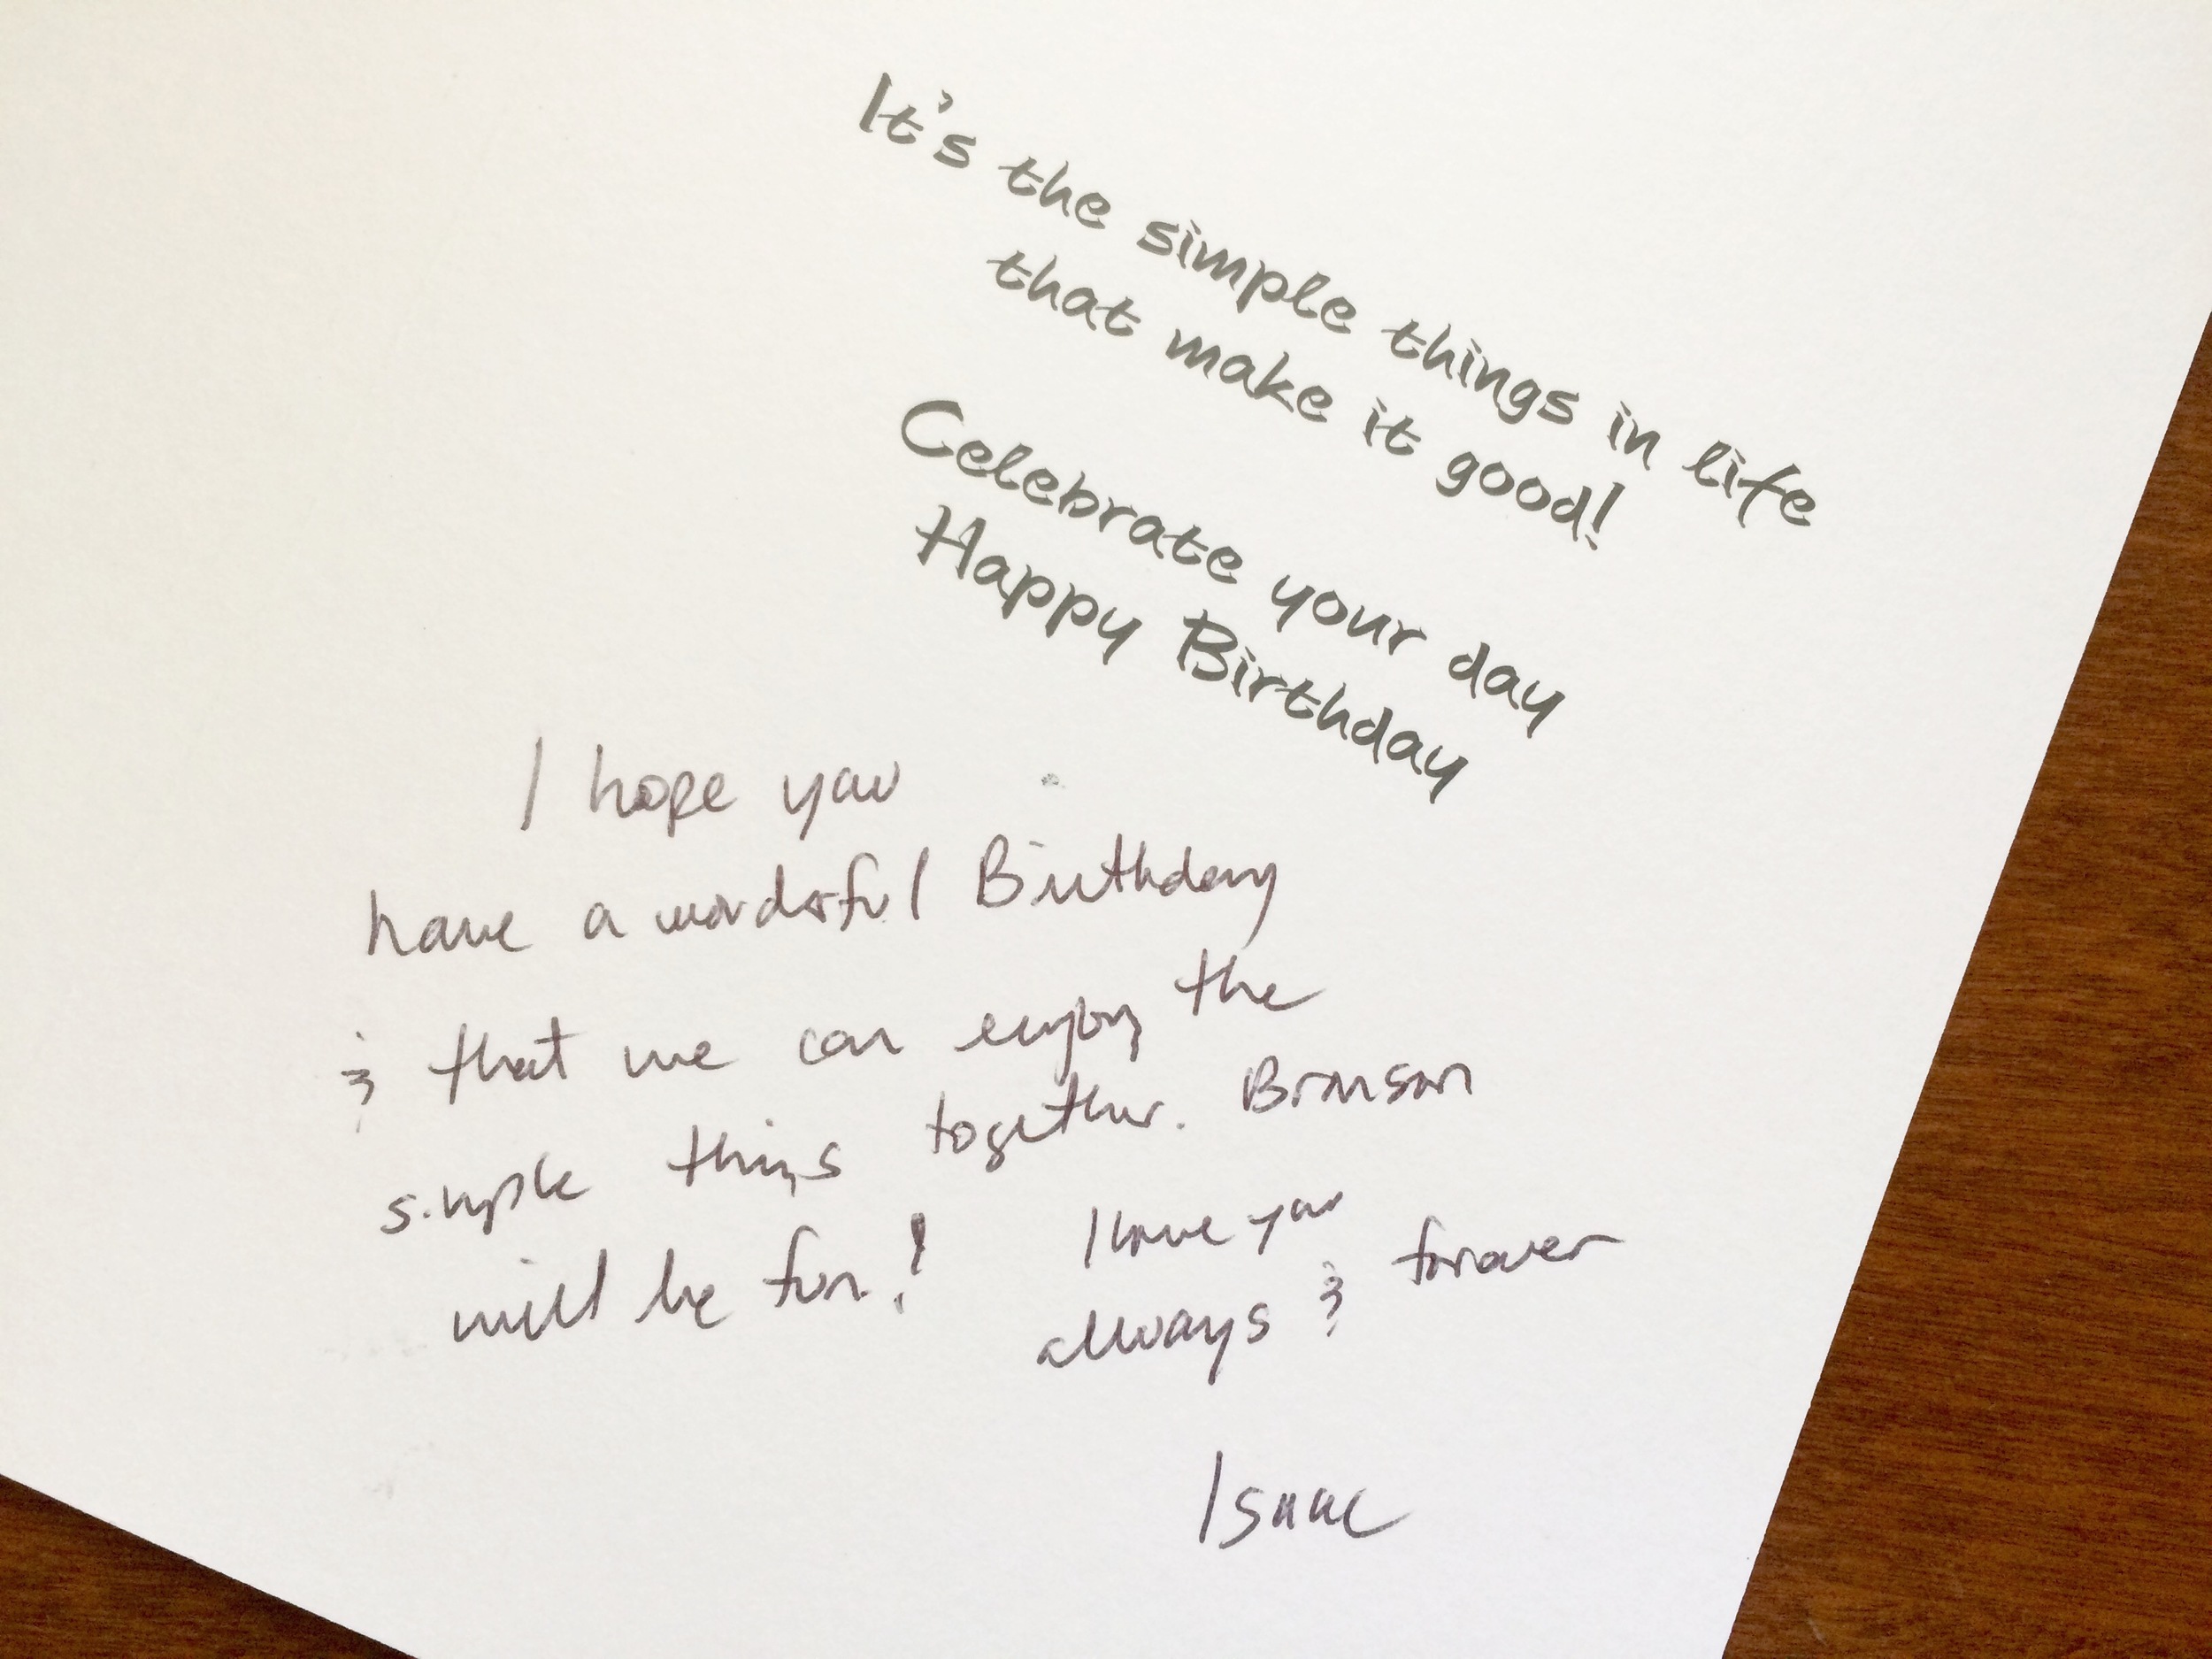 It's the simple things in life
that make it good!
Celebrate your day
Happy Birthday
I hope you
have a wonderful Birthday
& that we can enjoy the
simple things together. Branson
will be fun!
I love you
always & forever
Isaac